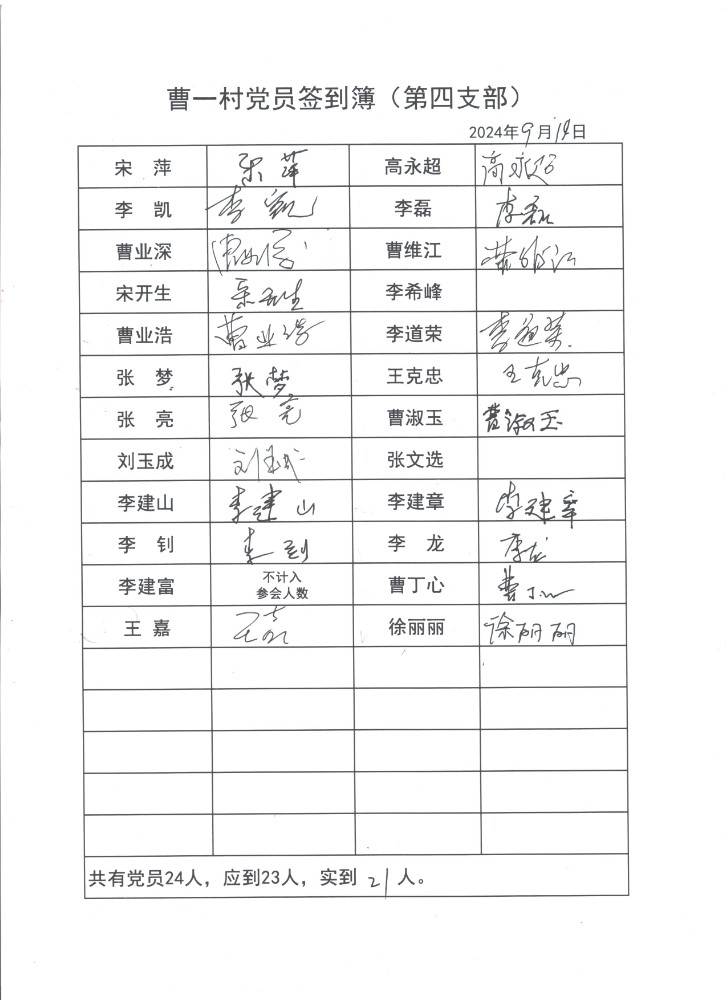 曹一村党员签到簿（第四支部）
2024年9月14日
宋 萍 宋萍 高永超 高永超
李 凯 李凯 李磊 李磊
曹业深 曹业深 曹维江 曹维江
宋开生 宋开生 李希峰
曹业浩 曹业浩 李道荣 李道荣
张 梦 张梦 王克忠 王克忠
张 亮 张亮 曹淑玉 曹淑玉
刘玉成 刘玉成 张文选
李建山 李建山 李建章 李建章
李 钊 李钊 李 龙 李龙
李建富 不计入 曹丁心 曹丁心
参会人数
王 嘉 王嘉 徐丽丽 徐丽丽
共有党员24人，应到23人，实到 21 人。